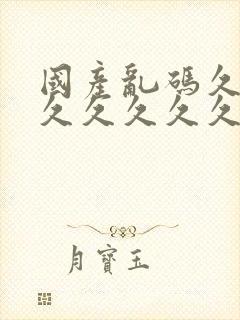 國產亂碼久
久久久久久
月寶玉